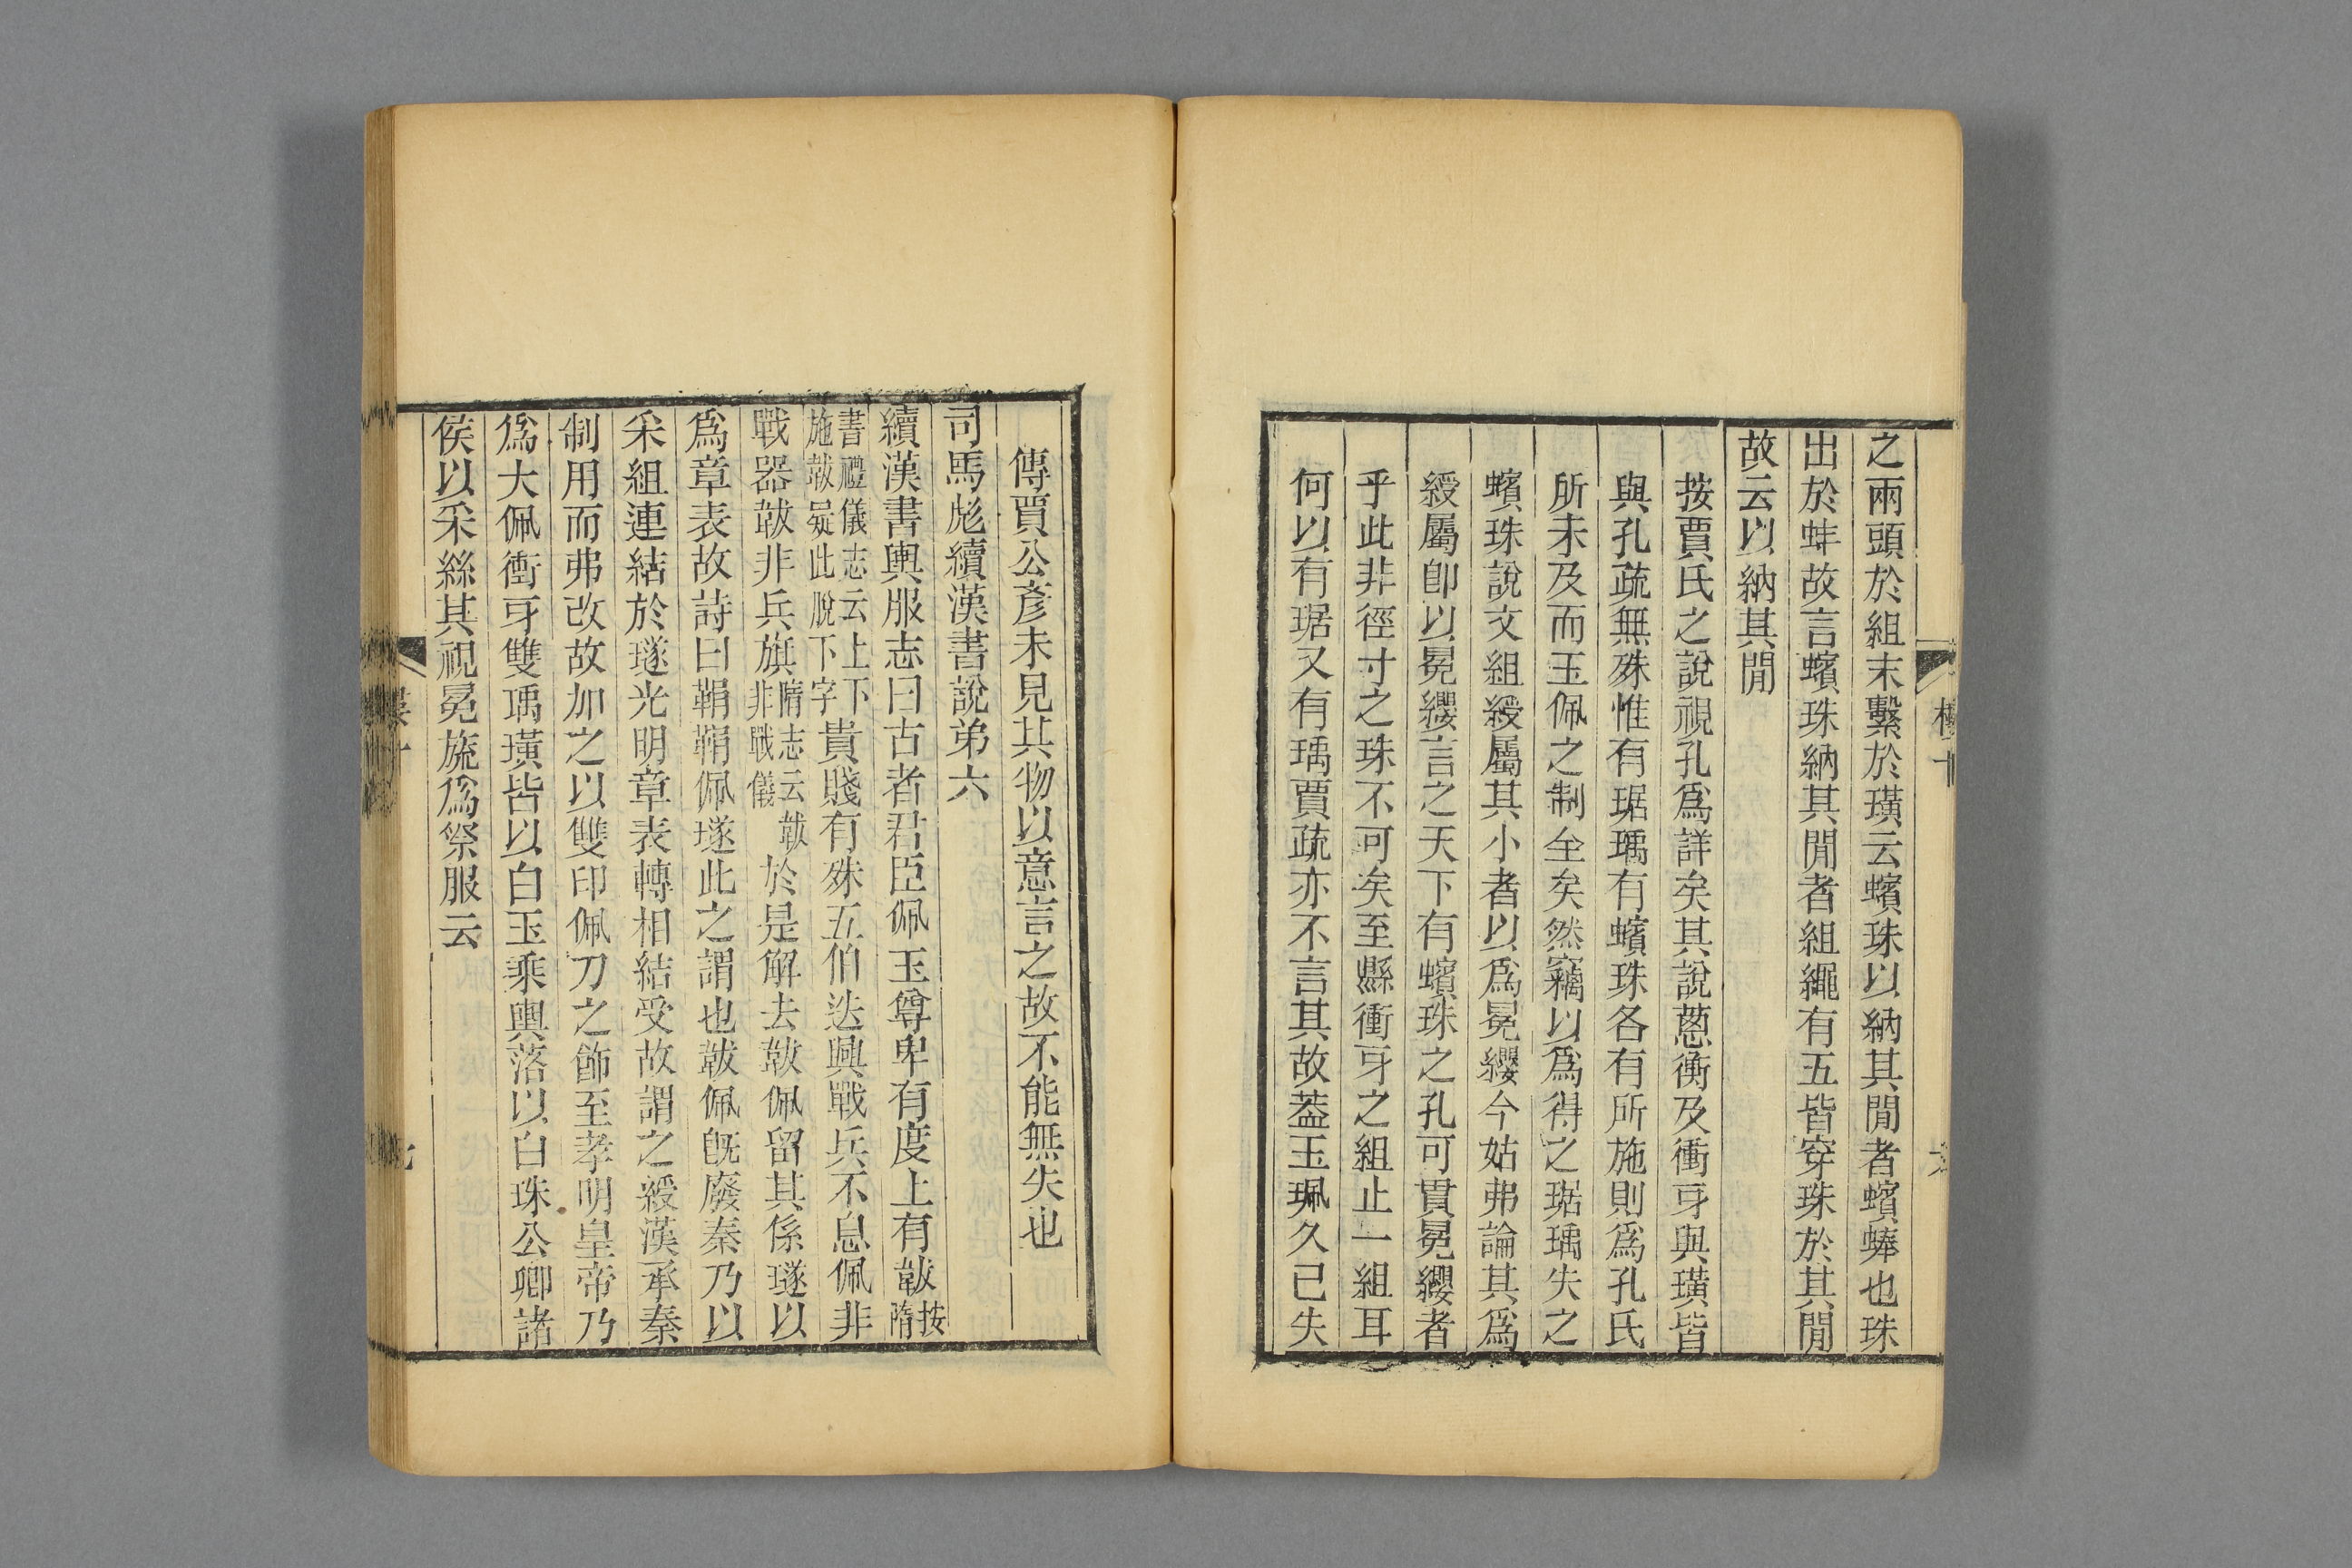 之兩頭於組末繫於璜云蠙珠以納其閒者蠙蜯也珠
出於蚌故言蠙珠納其閒者組繩有五皆穿珠於其閒
故云以納其閒
按賈氏之說視孔爲詳矣其說蔥衡及衝牙與璜皆
與孔疏無殊惟有琚瑀有蠙珠各有所施則爲孔氏
所未及而玉佩之制全矣然竊以爲得之琚瑀失之
蠙珠說文組綬屬其小者以爲冕纓今姑弗論其爲
綬屬卽以冕纓言之天下有蠙珠之孔可貫冕纓者
乎此非徑寸之珠不可矣至縣衝牙之組止一組耳
何以有琚又有瑀賈疏亦不言其故葢玉珮久已失
傳賈公彥未見其物以意言之故不能無失也
司馬彪續漢書說弟六
續漢書輿服志曰古者君臣佩玉尊卑有度上有韍按隋
書禮儀志云上下施韍疑此脫下字貴賤有殊五伯迭興戰兵不息佩非
戰器韍非兵旗隋志云韍非戰儀於是解去韍佩留其係璲以
爲章表故詩曰鞙鞙佩璲此之謂也韍佩旣廢秦乃以
采組連結於璲光明章表轉相結受故謂之綬漢承秦
制用而弗改故加之以雙印佩刀之飾至孝明皇帝乃
爲大佩衝牙雙瑀璜皆以白玉乘輿落以白珠公卿諸
侯以采絲其視冕旒爲祭服云